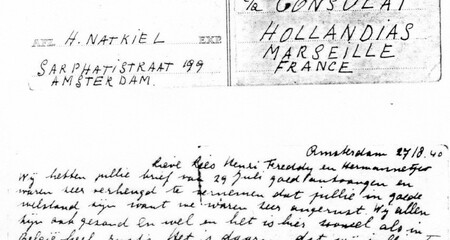 c/a CONSULAT
HOLLANDIAS
MARSEILLE
FRANCE
AFZ H. NATKIEL EXP
SARPHATISTRAAT 199
AMSTERDAM.
Amsterdam 27/8.40
Lieve Kees Henri Freddy en Hermannetje
Wij hebben jullie brief van 29 Juli goed ontvangen en
waren zeer verheugd te vernemen dat jullie in goede
welstand zijn want we waren zeer ongerust. Wij allen
zijn ook gezond en wel en het is hier zoowel als in
België heel